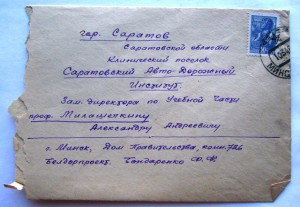 гор. Саратов
Саратовской области
Клинический поселок
Саратовский Авто-Дорожный
Институт.
Зам. директора по Учебной Части
проф.
Александру Андреевичу
г. Минск, Дом Правительства, комн. 726
Белдорпроект. Бондаренко Ф.Ф
МИНСК